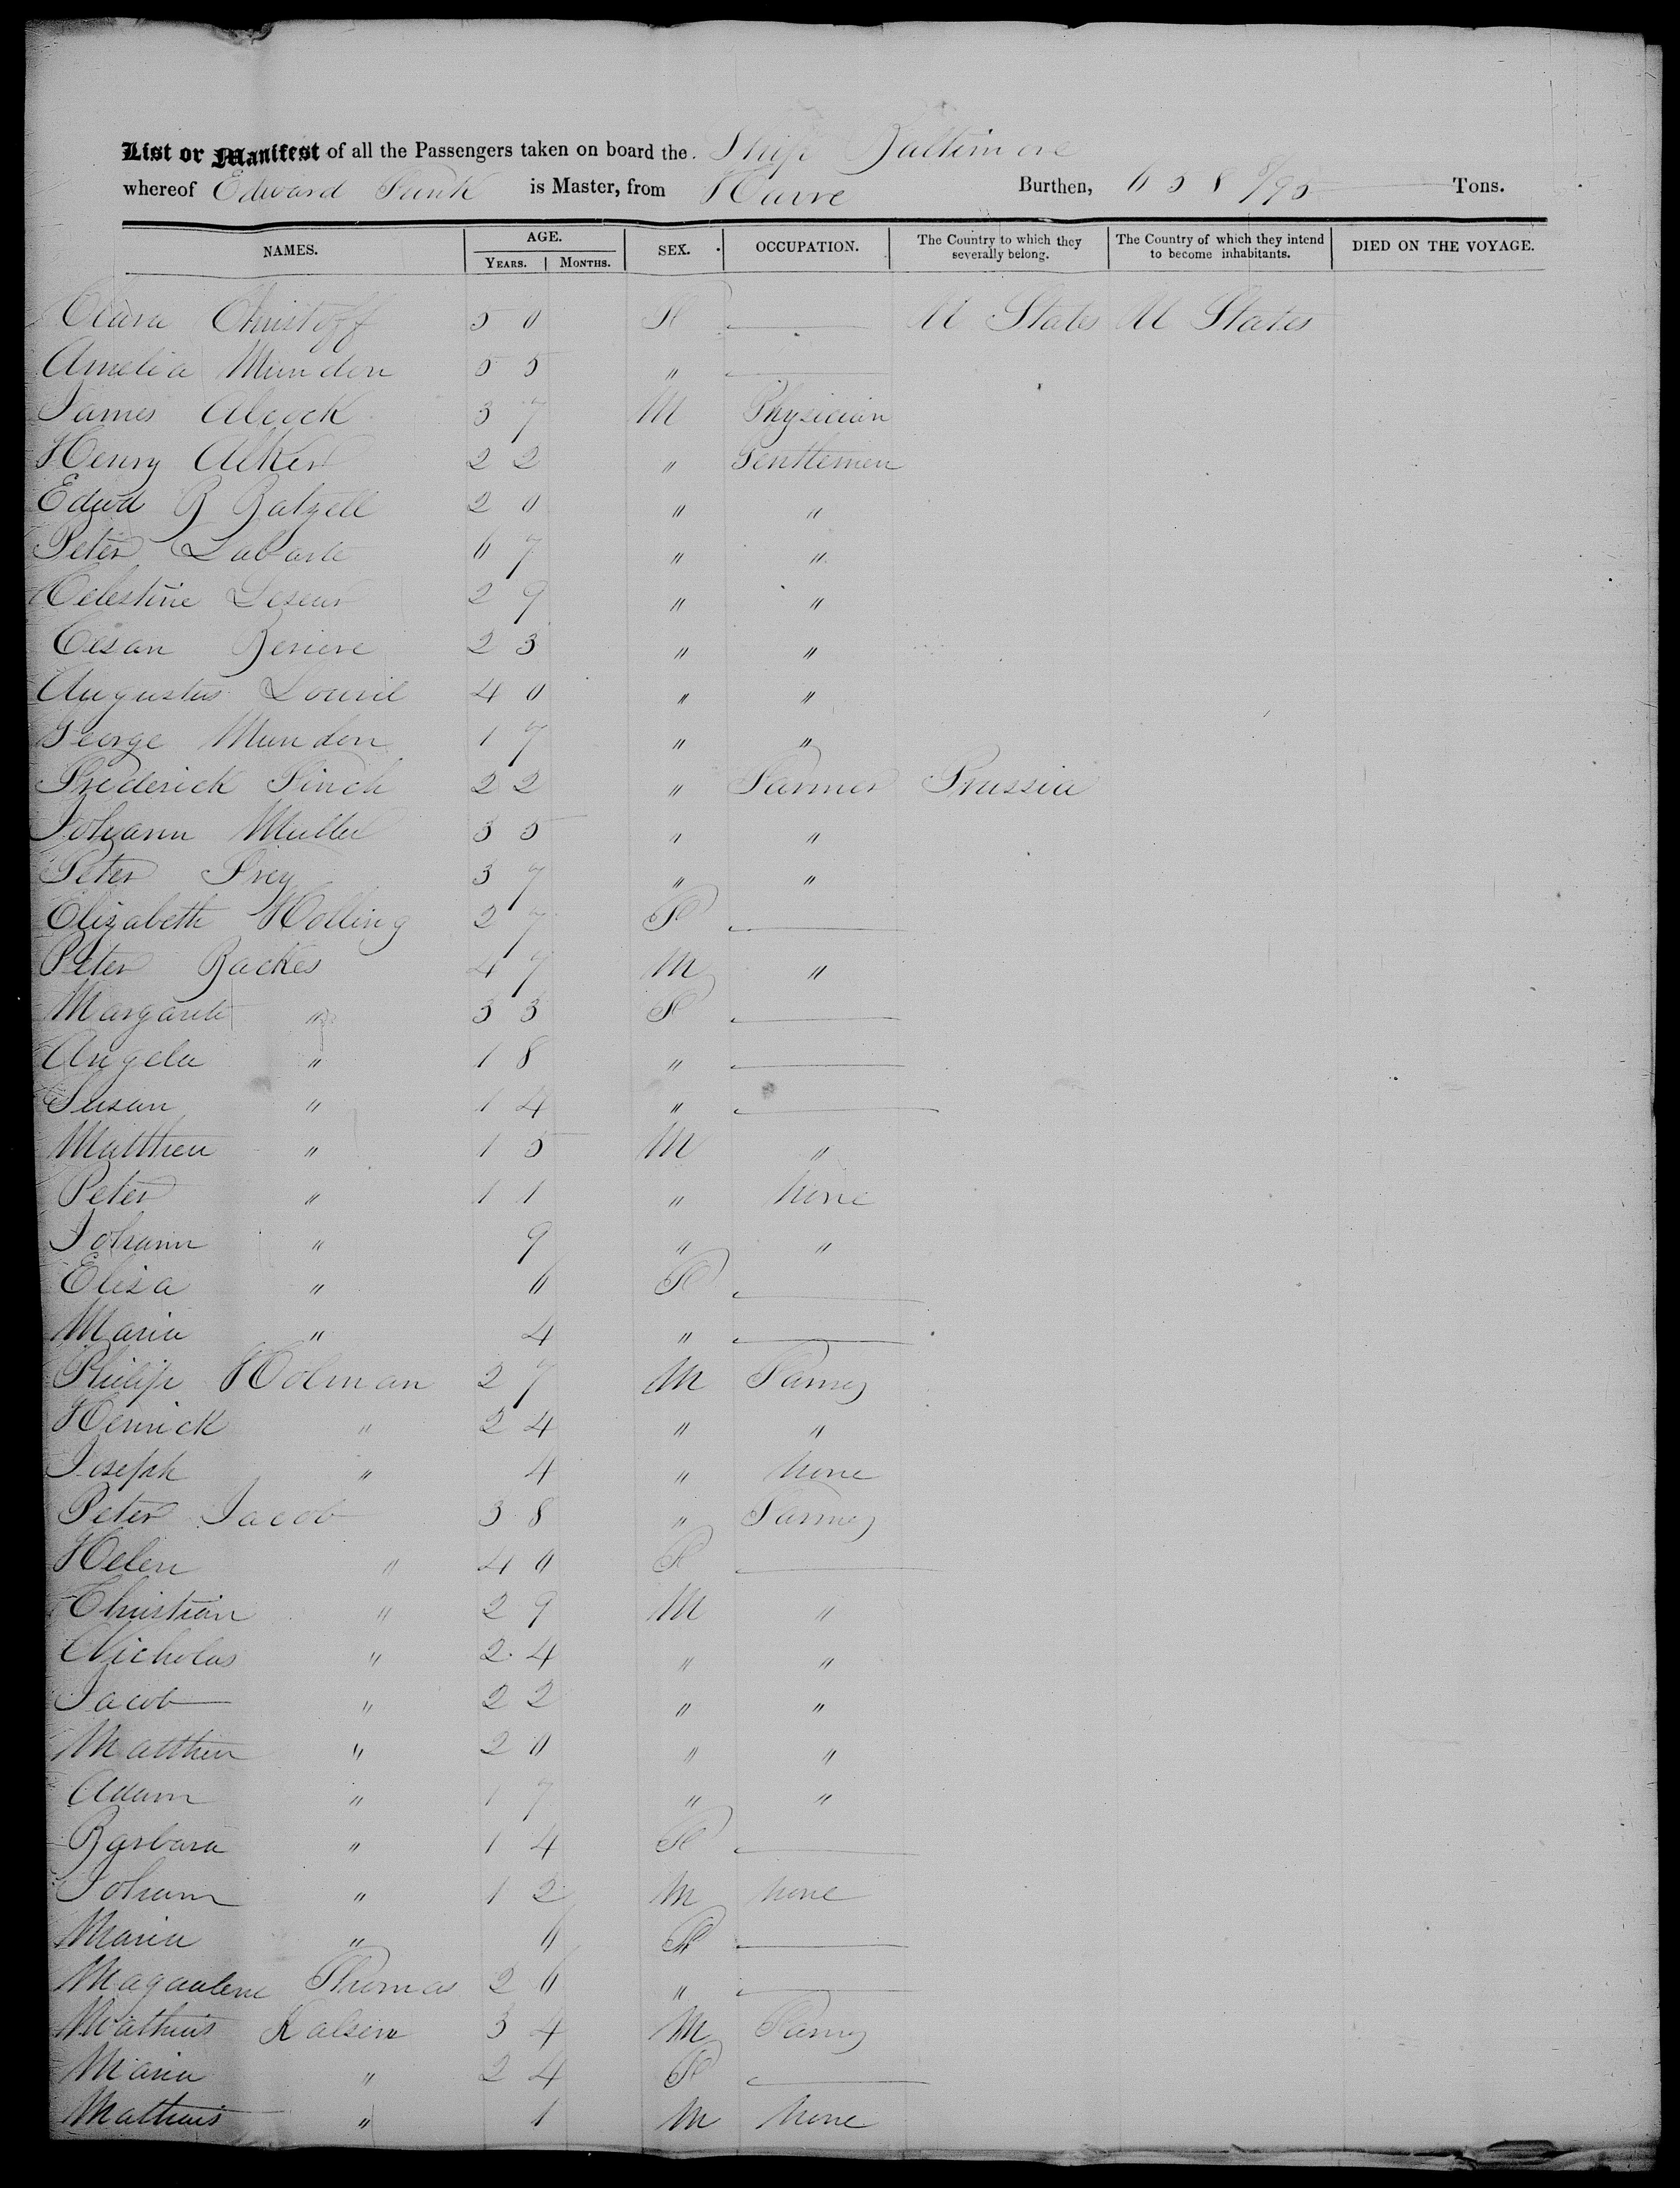 List or Manifest of all the Passengers taken on board the Ship Baltimore
whereof Edward Funk is Master, from Havre Burthen, 658 8/95 Tons.
NAMES. AGE. YEARS. MONTHS. SEX. OCCUPATION. The Country to which they severally belong. The Country of which they intend to become inhabitants. DIED ON THE VOYAGE.
Clara Christoff 50 F U States U States
Amelia Mundon 55 "
James Alcock 37 M Physician
Henry Alker 22 " Gentlemen
Edwd B Batzell 20 " "
Peter 67 " "
Celestine Leseur 29 " "
Cesan 23 " "
Augustus 40 " "
George Mundon 17 " "
Frederick Finch 22 " Farmer Prussia
Johann Muller 35 " "
Peter Frey 37 " "
Elizabeth Holling 27 F
Peter Backes 47 M "
Margaret " 33 F
Angela " 18 "
Susan " 14 "
Matthew " 15 M "
Peter " 11 " None
Johann " 9 " "
Elisa " 6 F
Maria " 4 "
Philip Holman 27 M Farmer
Henrick " 24 " "
Joseph " 4 " None
Peter Jacob 38 " Farmer
Helen " 40 F
Christian " 29 M "
Nicholas " 24 " "
Jacob " 22 " "
Matthew " 20 " "
Adam " 17 " "
Barbara " 14 F
Johann " 12 M None
Maria " 6 F
Magdalene Thomas 26 "
Mathias Kalsen 34 M Farmer
Maria " 24 F
Mathias " 1 M None